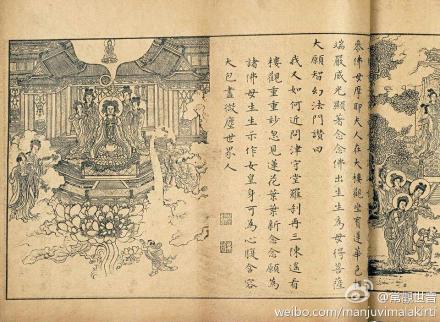 參佛母摩耶夫人在大樓觀坐寶蓮華色
端嚴威光顯著念念佛出生生為母得菩薩
大願智幻法門讚曰
我人如何近問津守堂羅剎再三陳遙看
樓觀重重妙忽見蓮花葉葉新念念願為
諸佛母生生示作女皇身可為心腹含容
大包盡微塵世界人
@常觀世言
weibo.com/manjuvimalakirti